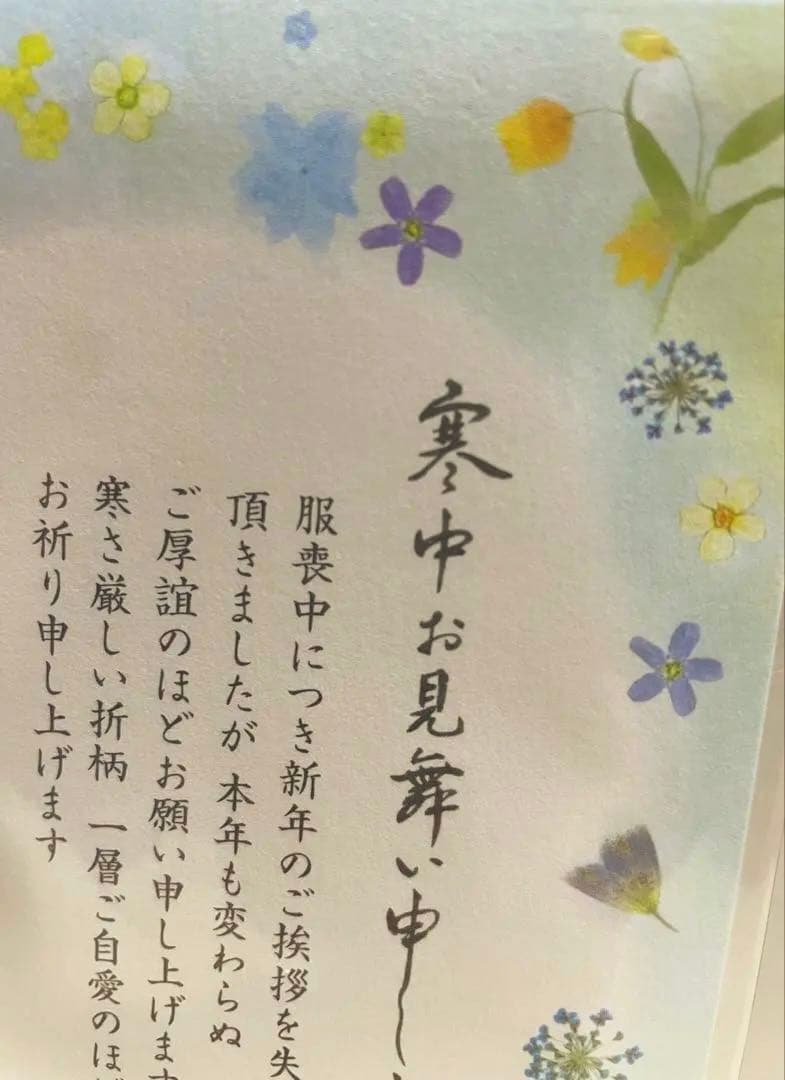 寒中お見舞い申し
服喪中につき新年のご挨拶を失
頂きましたが 本年も変わらぬ
ご厚誼のほどお願い申し上げます
寒さ厳しい折柄 一層ご自愛のほど
お祈り申し上げます